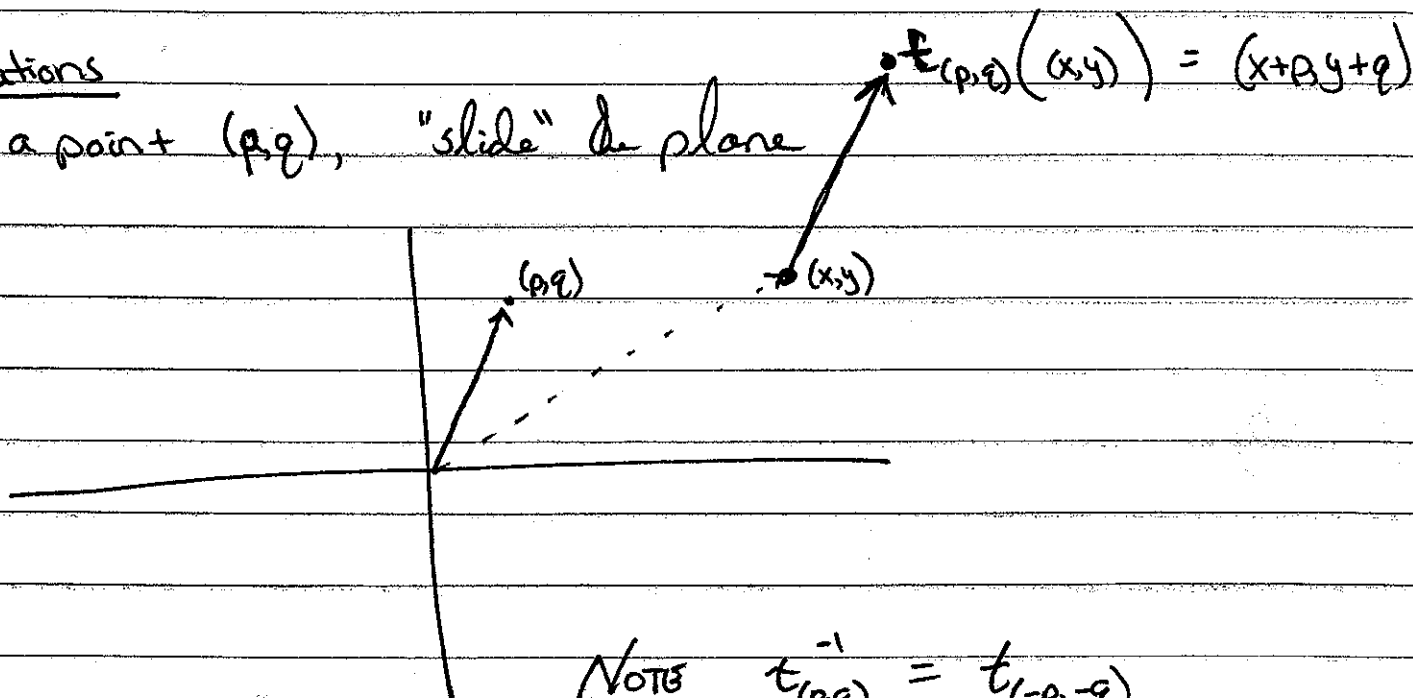 ations
t_(p,q)((x,y)) = (x+p,y+q)
a point (p,q), "slide" the plane
(p,q)
(x,y)
NOTE t_(p,q)^-1 = t_(-p,-q)